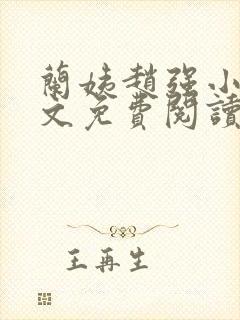 蘭姨趙強小
文免費閱讀
王再生